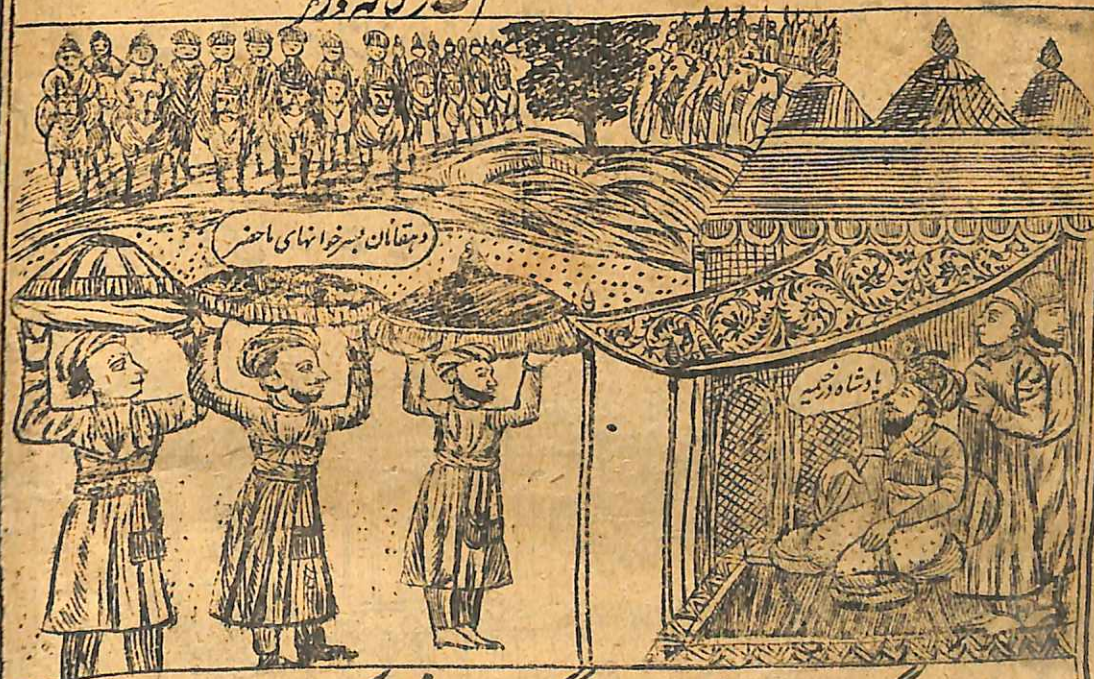 دهقانان بسر خوانهای ماحضر
پادشاه در خیمه